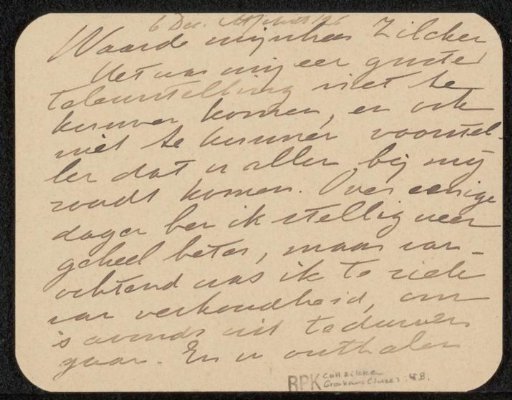 6 Dec.
Waarde mijnheer Zilcken
Het was mij eer groote
teleurstelling niet te
kunnen komen, en ook
niet te kunnen voorstel-
len dat u allen bij mij
zoudt komen. Over eenige
dagen ben ik stellig weer
geheel beter, maar van-
ochtend was ik te ziek
van verkoudheid, om
's avonds uit te durven
gaan. En u onthalen
RPK Coll. Zilcken